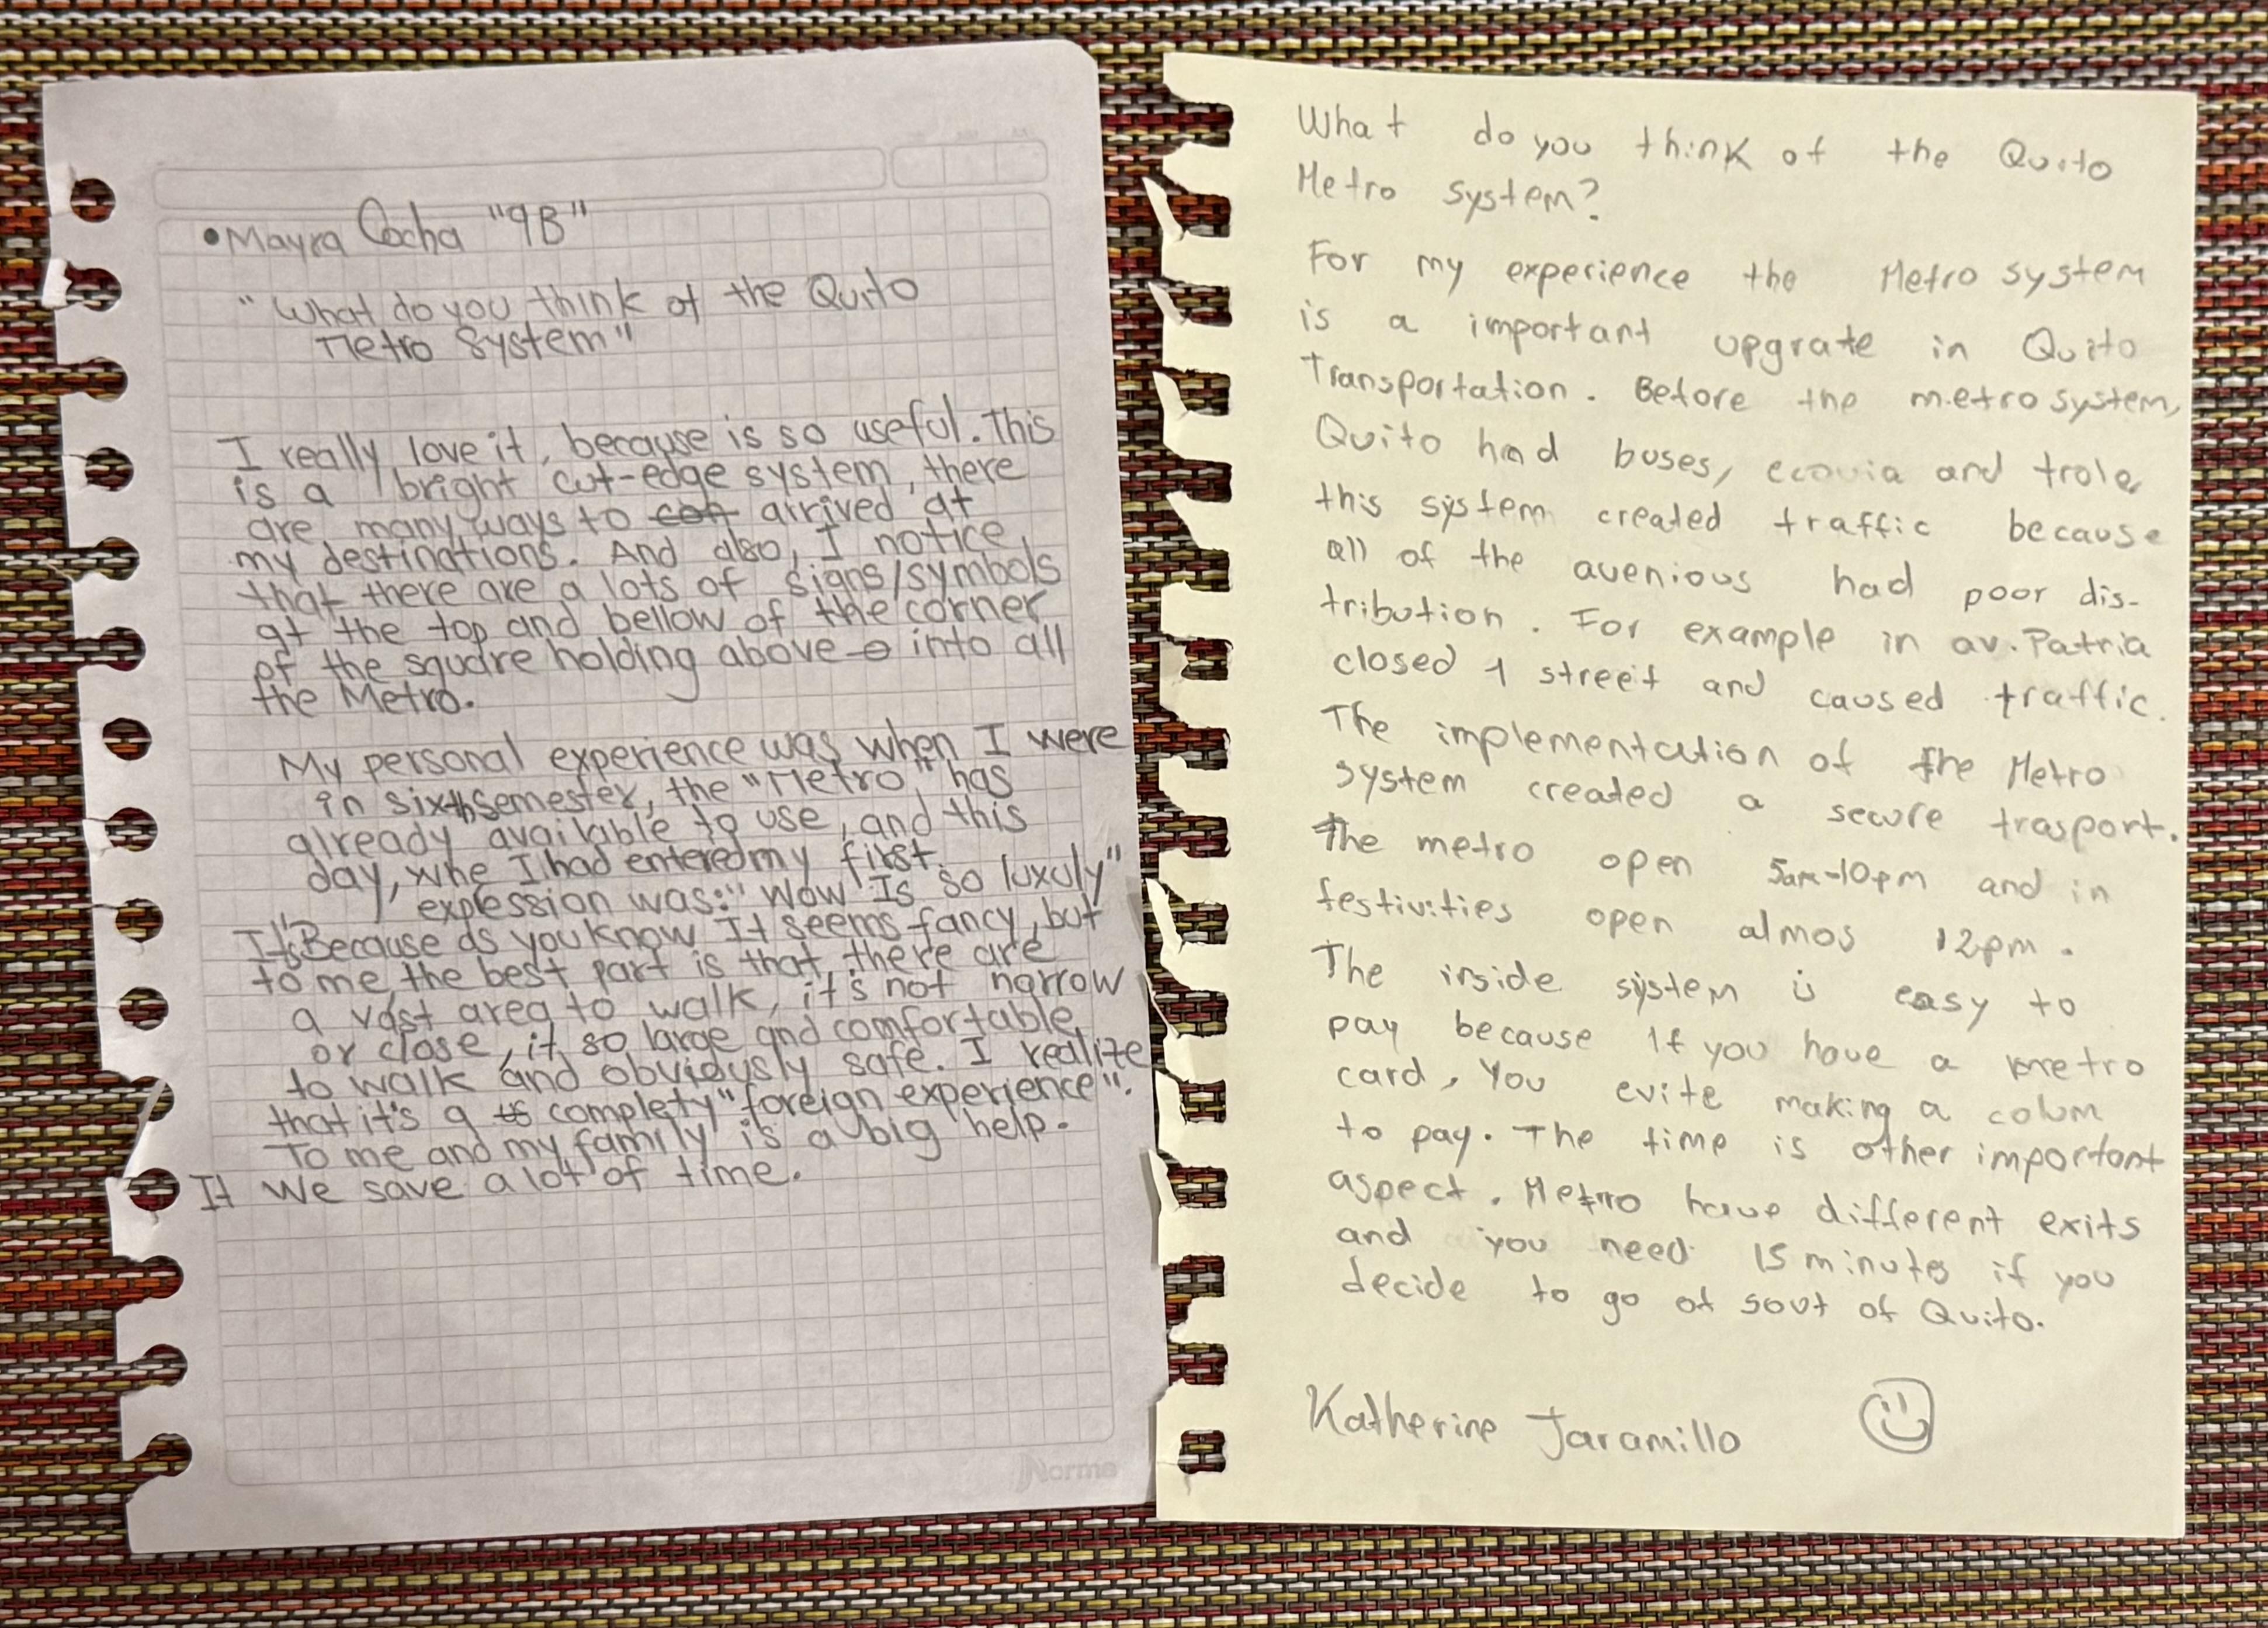 •Mayra Cocha "9B"
"What do you think of the Quito
Metro System"
I really love it, because is so useful. This
is a bright cut-edge system, there
are many ways to arrived at
my destinations. And also, I notice
that there are a lots of signs/symbols
at the top and bellow of the corner
of the square holding above into all
the Metro.
My personal experience was when I were
in sixth semester, the "Metro" has
already available to use, and this
day, whe I had entered my first
explession was: "Wow Is so luxuly"
It's "Because as you know It seems fancy, but
to me, the best part is that, there are
a vast area to walk, it's not narrow
or close, it so large and comfortable
to walk and obviously safe. I realize
that it's a complety "foreign experience".
To me and my family is a big help.
It We save a lot of time.
Norma
What do you think of the Quito
Metro System?
For my experience the Metro system
is a important upgrate in Quito
Transportation. Before the metro system,
Quito had buses, ecovia and trole,
this system created traffic because
all of the avenious had poor dis-
tribution. For example in av. Patria
closed 1 street and caused traffic.
The implementation of the Metro
system created a secure trasport.
The metro open 5am-10pm and in
festivities open almos 12pm.
The inside system is easy to
pay because if you have a metro
card, You evite making a colum
to pay. The time is other important
aspect. Metro have different exits
and you need 15 minutes if you
decide to go of sout of Quito.
Katherine Jaramillo